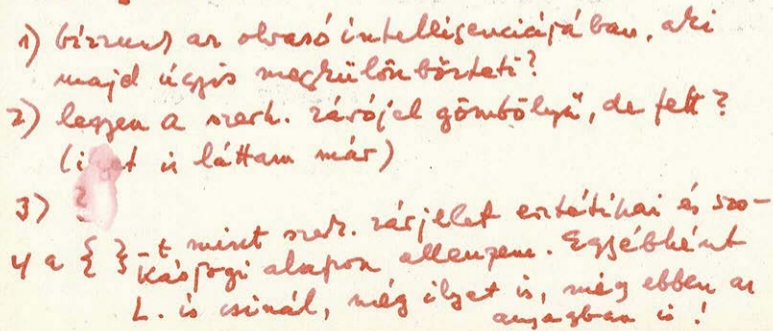 1) bízzunk az olvasó intelligenciájában, aki
majd úgyis megkülönbözteti?
2) legyen a szerk. zárójel gömbölyű, de fett?
(ilyet is láttam már)
3) ?
4 a { }-t mint szerk. zárjelet esztétikai és szo-
kásjogi alapon ellenzem. Egyébként
L. is csinál, még ilyet is, még ebben az
anyagban is!